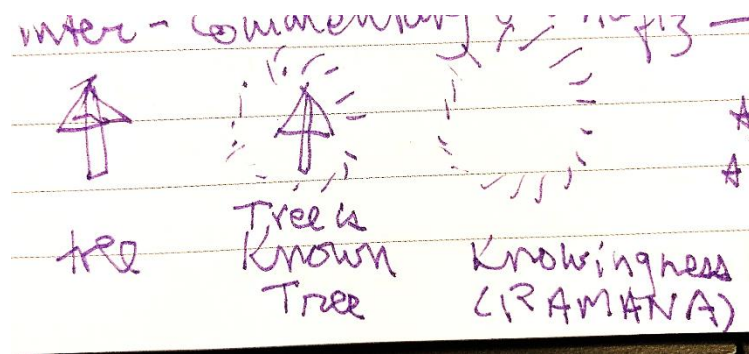 inter - Commentary
tree
Tree is
Known
Tree
Knowingness
(RAMANA)